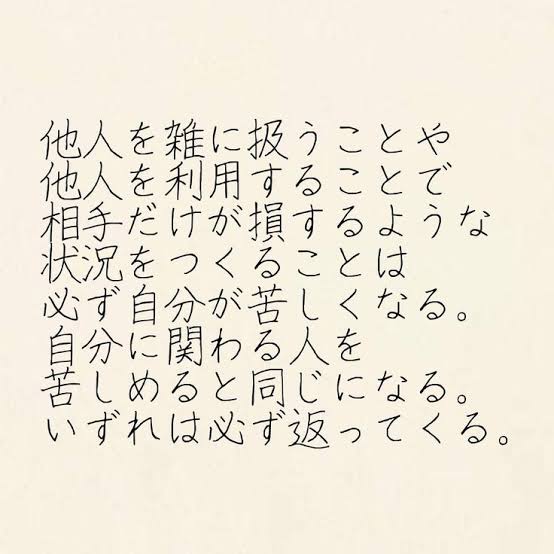 他人を雑に扱うことや
他人を利用することで
相手だけが損するような
状況をつくることは
必ず自分が苦しくなる。
自分に関わる人を
苦しめると同じになる。
いずれは必ず返ってくる。